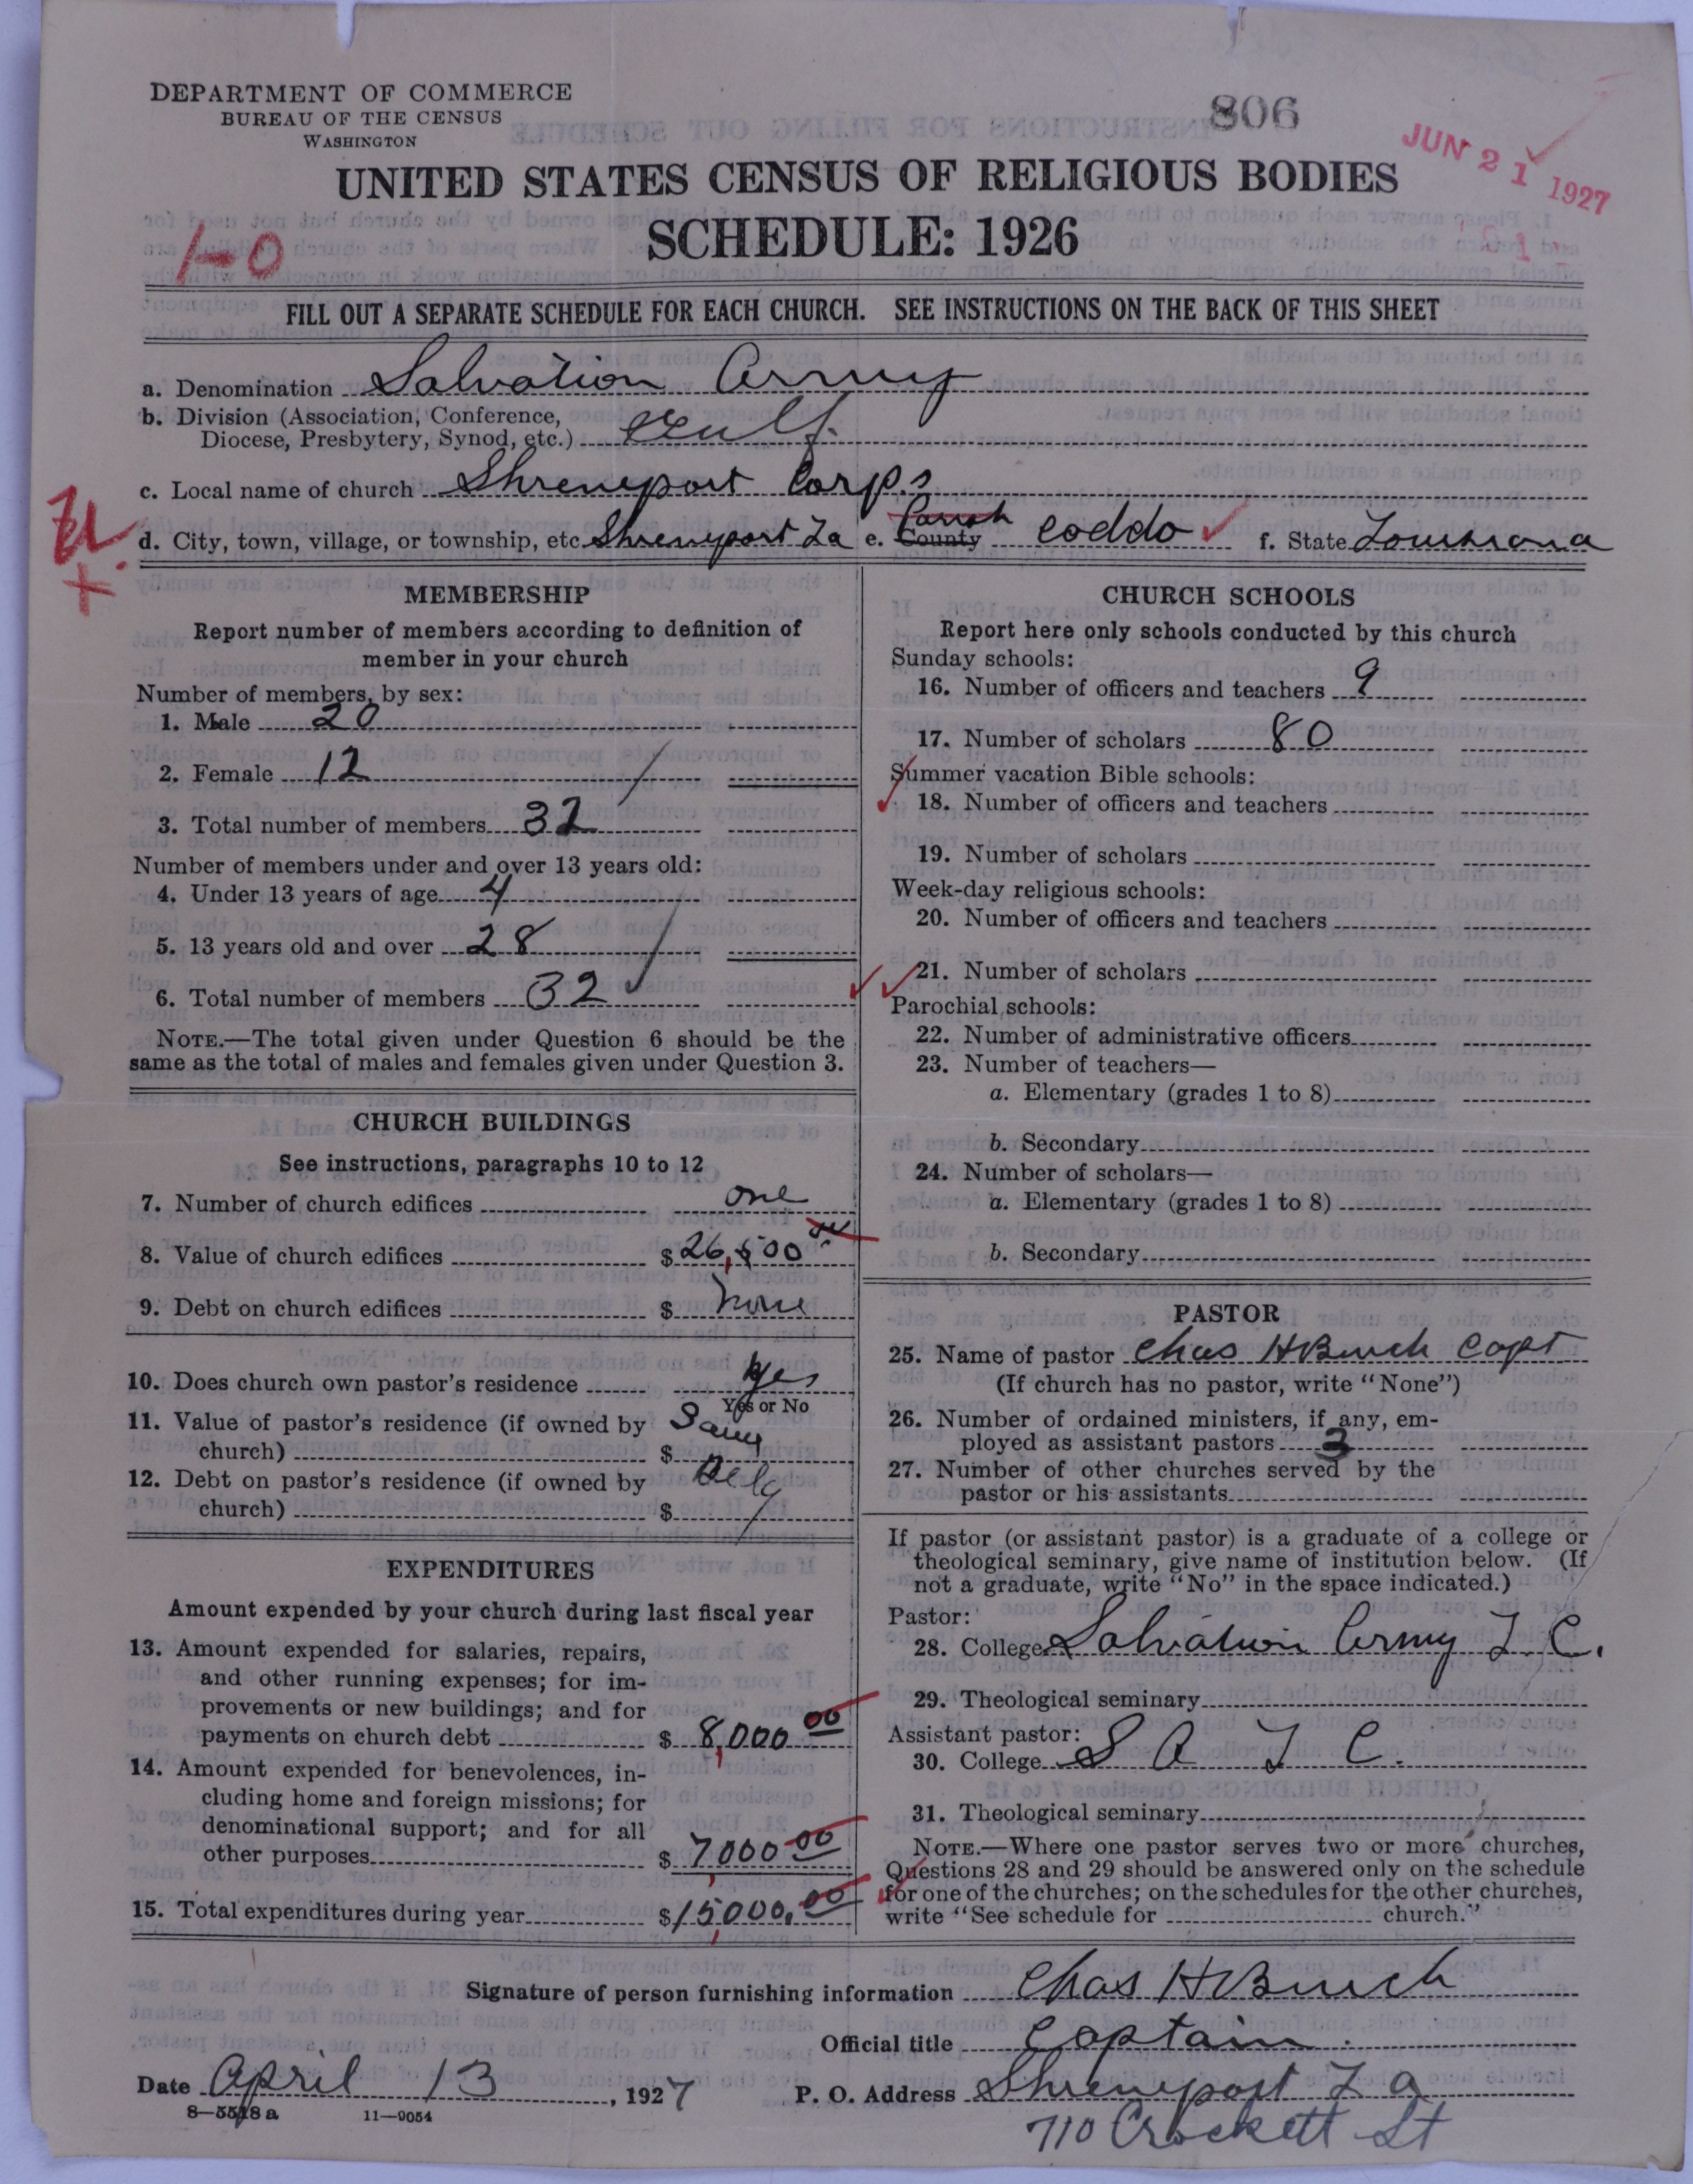 DEPARTMENT OF COMMERCE
BUREAU OF THE CENSUS
WASHINGTON
806
JUN 21 1927
UNITED STATES CENSUS OF RELIGIOUS BODIES
SCHEDULE: 1926
1-0
FILL OUT A SEPARATE SCHEDULE FOR EACH CHURCH. SEE INSTRUCTIONS ON THE BACK OF THIS SHEET
a. Denomination Salvation Army
b. Division (Association, Conference,
Diocese, Presbytery, Synod, etc.) Gulf.
c. Local name of church Shreveport Corps
d. City, town, village, or township, etc Shreveport La e. County Parish Caddo f. State Louisiana
MEMBERSHIP
Report number of members according to definition of
member in your church
Number of members, by sex:
1. Male 20
2. Female 12
3. Total number of members 32
Number of members under and over 13 years old:
4. Under 13 years of age 4
5. 13 years old and over 28
6. Total number of members 32
NOTE.—The total given under Question 6 should be the
same as the total of males and females given under Question 3.
CHURCH BUILDINGS
See instructions, paragraphs 10 to 12
7. Number of church edifices one
8. Value of church edifices $ 26,500
9. Debt on church edifices $ none
10. Does church own pastor's residence yes
Yes or No
11. Value of pastor's residence (if owned by
church) $
12. Debt on pastor's residence (if owned by
church) $
EXPENDITURES
Amount expended by your church during last fiscal year
13. Amount expended for salaries, repairs,
and other running expenses; for im-
provements or new buildings; and for
payments on church debt $ 8,000 00
14. Amount expended for benevolences, in-
cluding home and foreign missions; for
denominational support; and for all
other purposes $ 7,000 00
15. Total expenditures during year $ 15,000.00
CHURCH SCHOOLS
Report here only schools conducted by this church
Sunday schools:
16. Number of officers and teachers 9
17. Number of scholars 80
Summer vacation Bible schools:
18. Number of officers and teachers
19. Number of scholars
Week-day religious schools:
20. Number of officers and teachers
21. Number of scholars
Parochial schools:
22. Number of administrative officers
23. Number of teachers—
a. Elementary (grades 1 to 8)
b. Secondary
24. Number of scholars—
a. Elementary (grades 1 to 8)
b. Secondary
PASTOR
25. Name of pastor Chas H Burch Capt
(If church has no pastor, write "None")
26. Number of ordained ministers, if any, em-
ployed as assistant pastors
27. Number of other churches served by the
pastor or his assistants
If pastor (or assistant pastor) is a graduate of a college or
theological seminary, give name of institution below. (If
not a graduate, write "No" in the space indicated.)
Pastor:
28. College Salvation Army T. C.
29. Theological seminary
Assistant pastor:
30. College S A T C.
31. Theological seminary
NOTE.—Where one pastor serves two or more churches,
Questions 28 and 29 should be answered only on the schedule
for one of the churches; on the schedules for the other churches,
write "See schedule for church."
Signature of person furnishing information Chas H Burch
Official title Captain.
Date April 13, 1927 P. O. Address Shreveport La
8—5518 a 11—9054
710 Crockett St